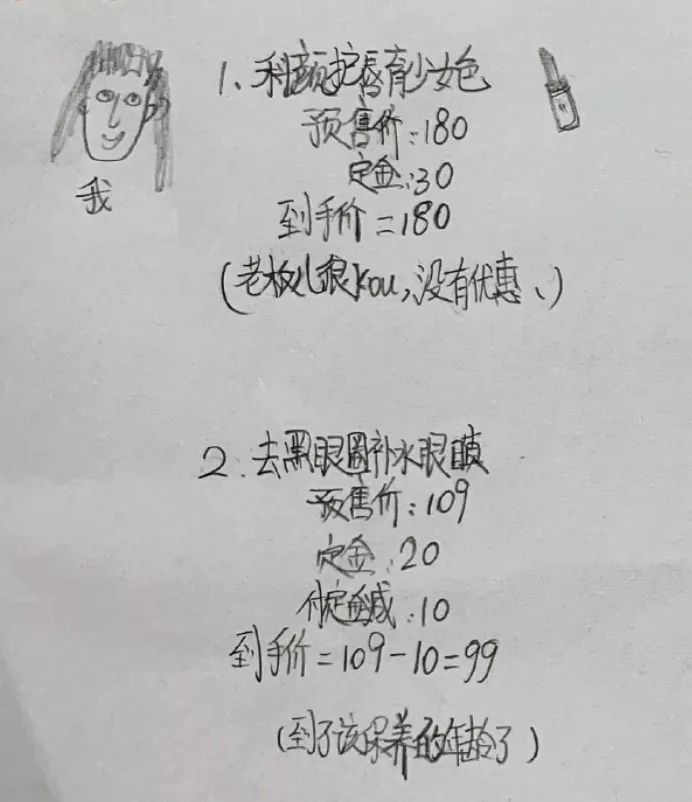 1、利颜护唇膏少女色
预售价：180
定金：30
到手价=180
我
（老板儿很kou，没有优惠、）
2.去黑眼圈补水眼膜
预售价：109
定金：20
付定金减：10
到手价=109-10=99
（到了该保养的年龄了）